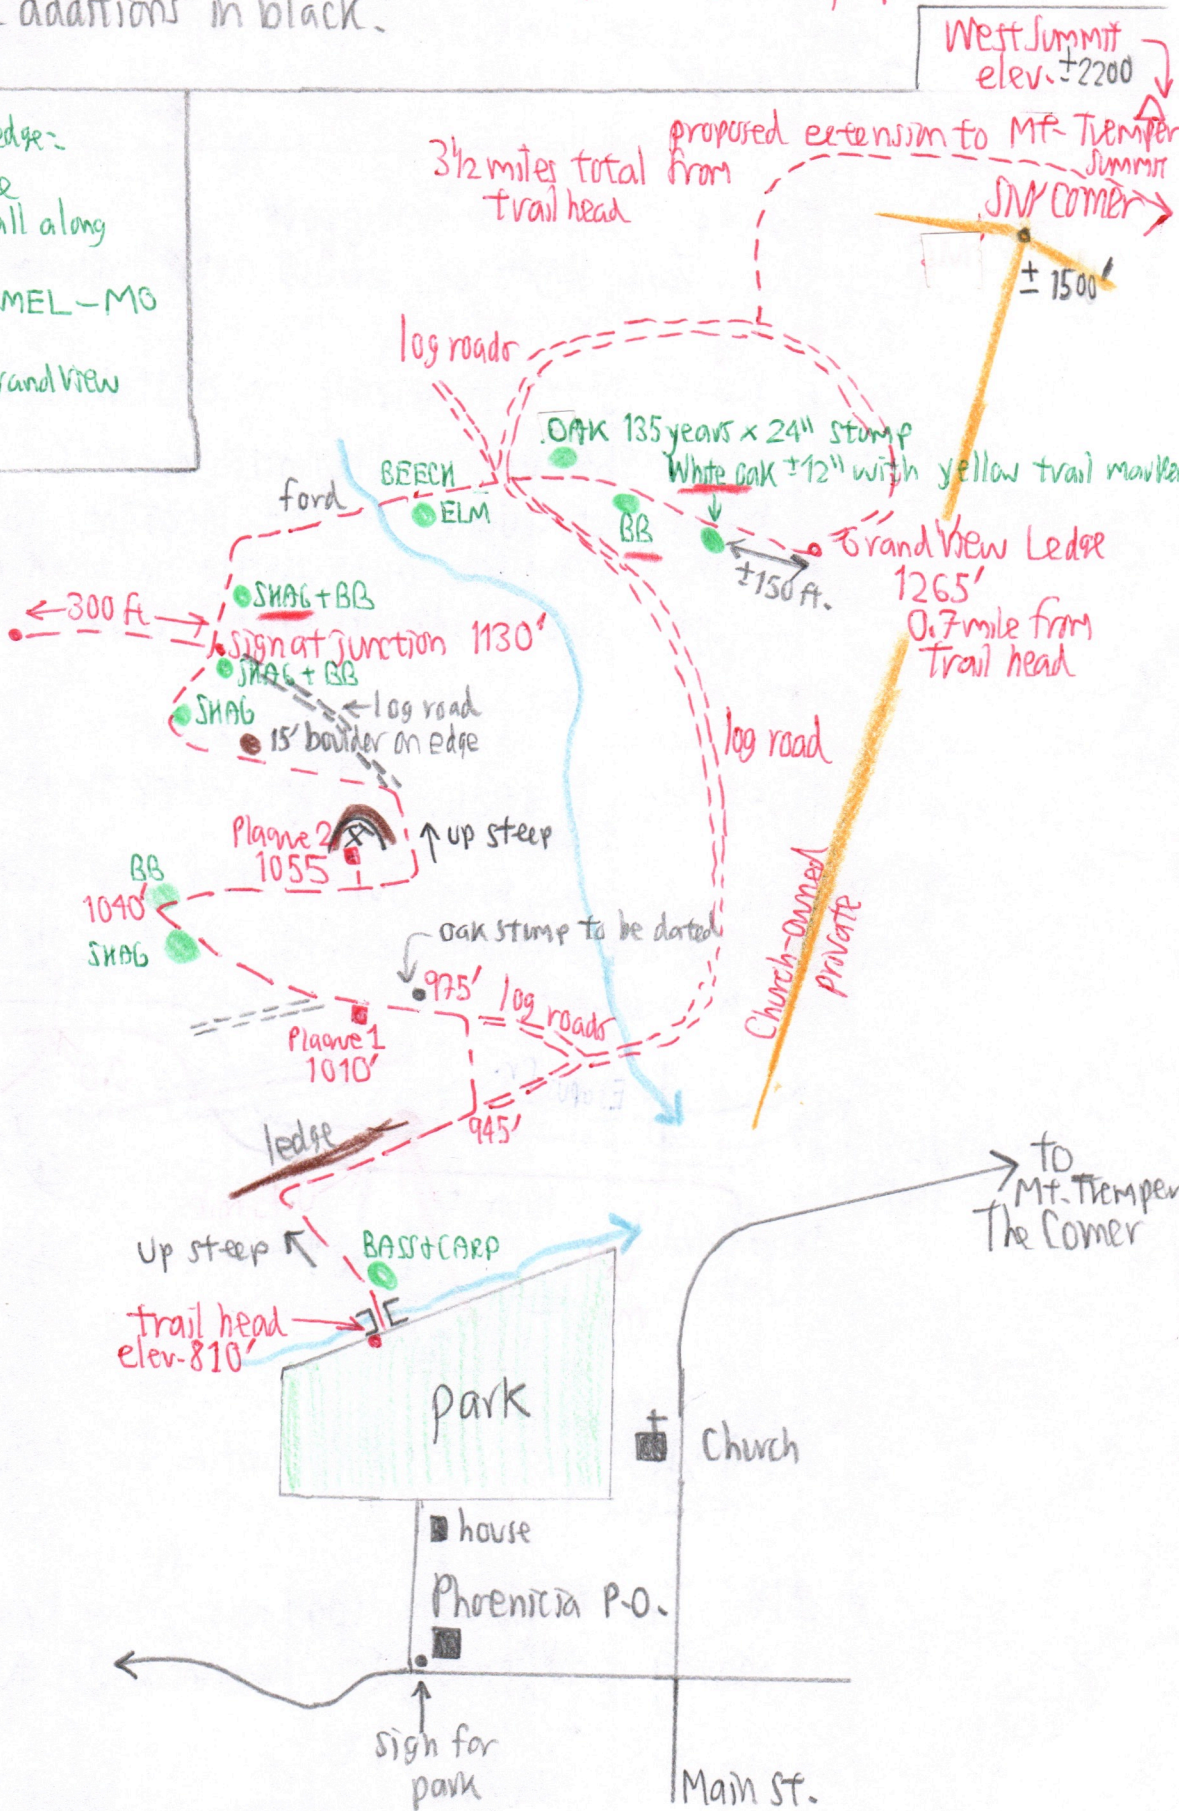 additions in black.
West Summit
elev. ±2200
edge:
all along
MEL-MO
Grand View
proposed extension to Mt. Tremper
Summit
3½ miles total from
trail head
SW corner
± 1500'
log roads
.OAK 135 years x 24" stump
White oak ±12" with yellow trail marker
BEECH
ELM
ford
BB
±150 ft.
Grand View Ledge
1265'
0.7 mile from
trail head
SHAG + BB
300 ft
sign at junction 1130'
SHAG + BB
SHAG
log road
15' boulder on edge
log road
Plaque 2
1055
up steep
BB
1040'
SHAG
oak stump to be dated
975'
log roads
Plaque 1
1010'
Church-owned
private
945'
ledge
to
Mt. Tremper
The Corner
up steep
BASS + CARP
trail head
elev-810'
park
Church
house
Phoenicia P.O.
sign for
park
Main St.